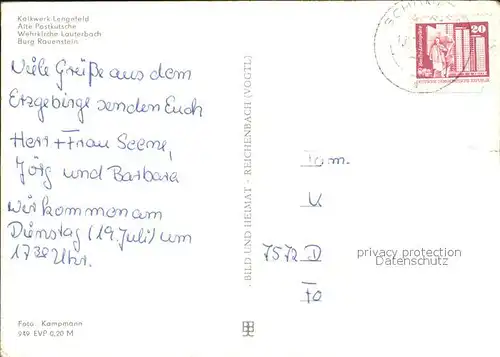 Kalkwerk Lengefeld
Alte Postkutsche
Wehrkirche Lauterbach
Burg Rauenstein
20
Viele Grüße aus dem
Erzgebirge senden Euch
Herr + Frau
Jörg und Barbara
Wir kommen am
Dienstag (19. Juli) um
Uhr.
BILD UND HEIMAT - REICHENBACH (VOGTL)
7572 D
privacy protection
Datenschutz
Foto: Kampmann
949 EVP 0,20 M